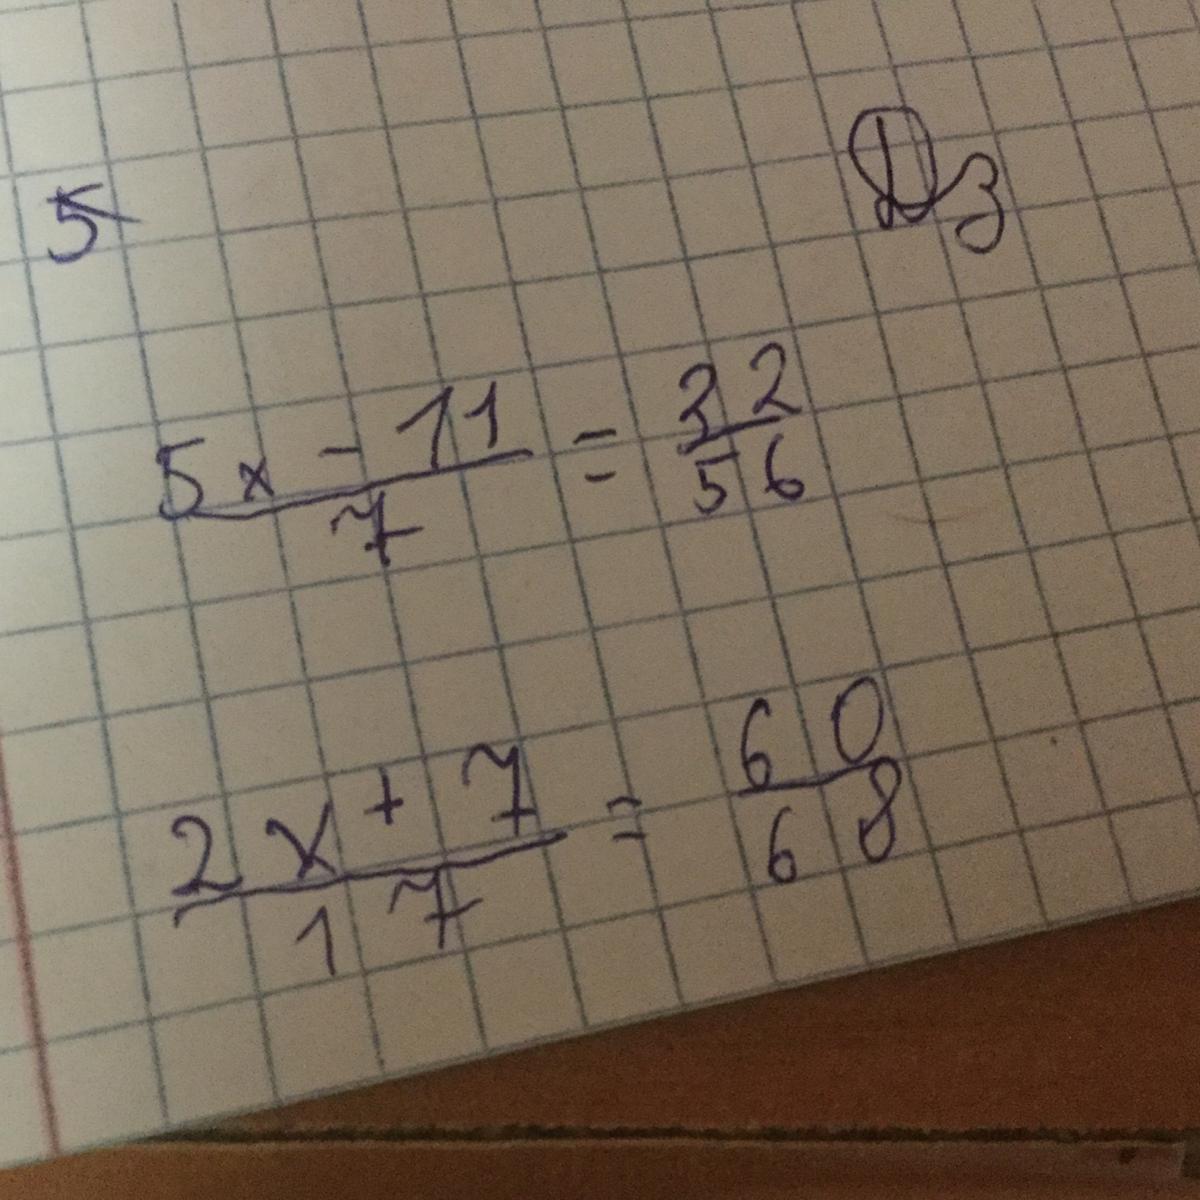 5
Dз
5x - 11 / 7 = 32 / 56
2x + 7 / 17 = 60 / 68